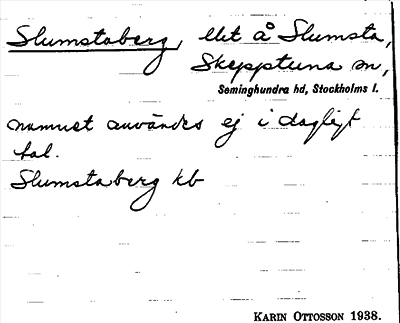 Slumstaberg, llet å Slumsta,
Skepptuna sn,
Seminghundra hd, Stockholms l.
namnet användes ej i dagligt
tal.
Slumstaberg kb
KARIN OTTOSSON 1938.